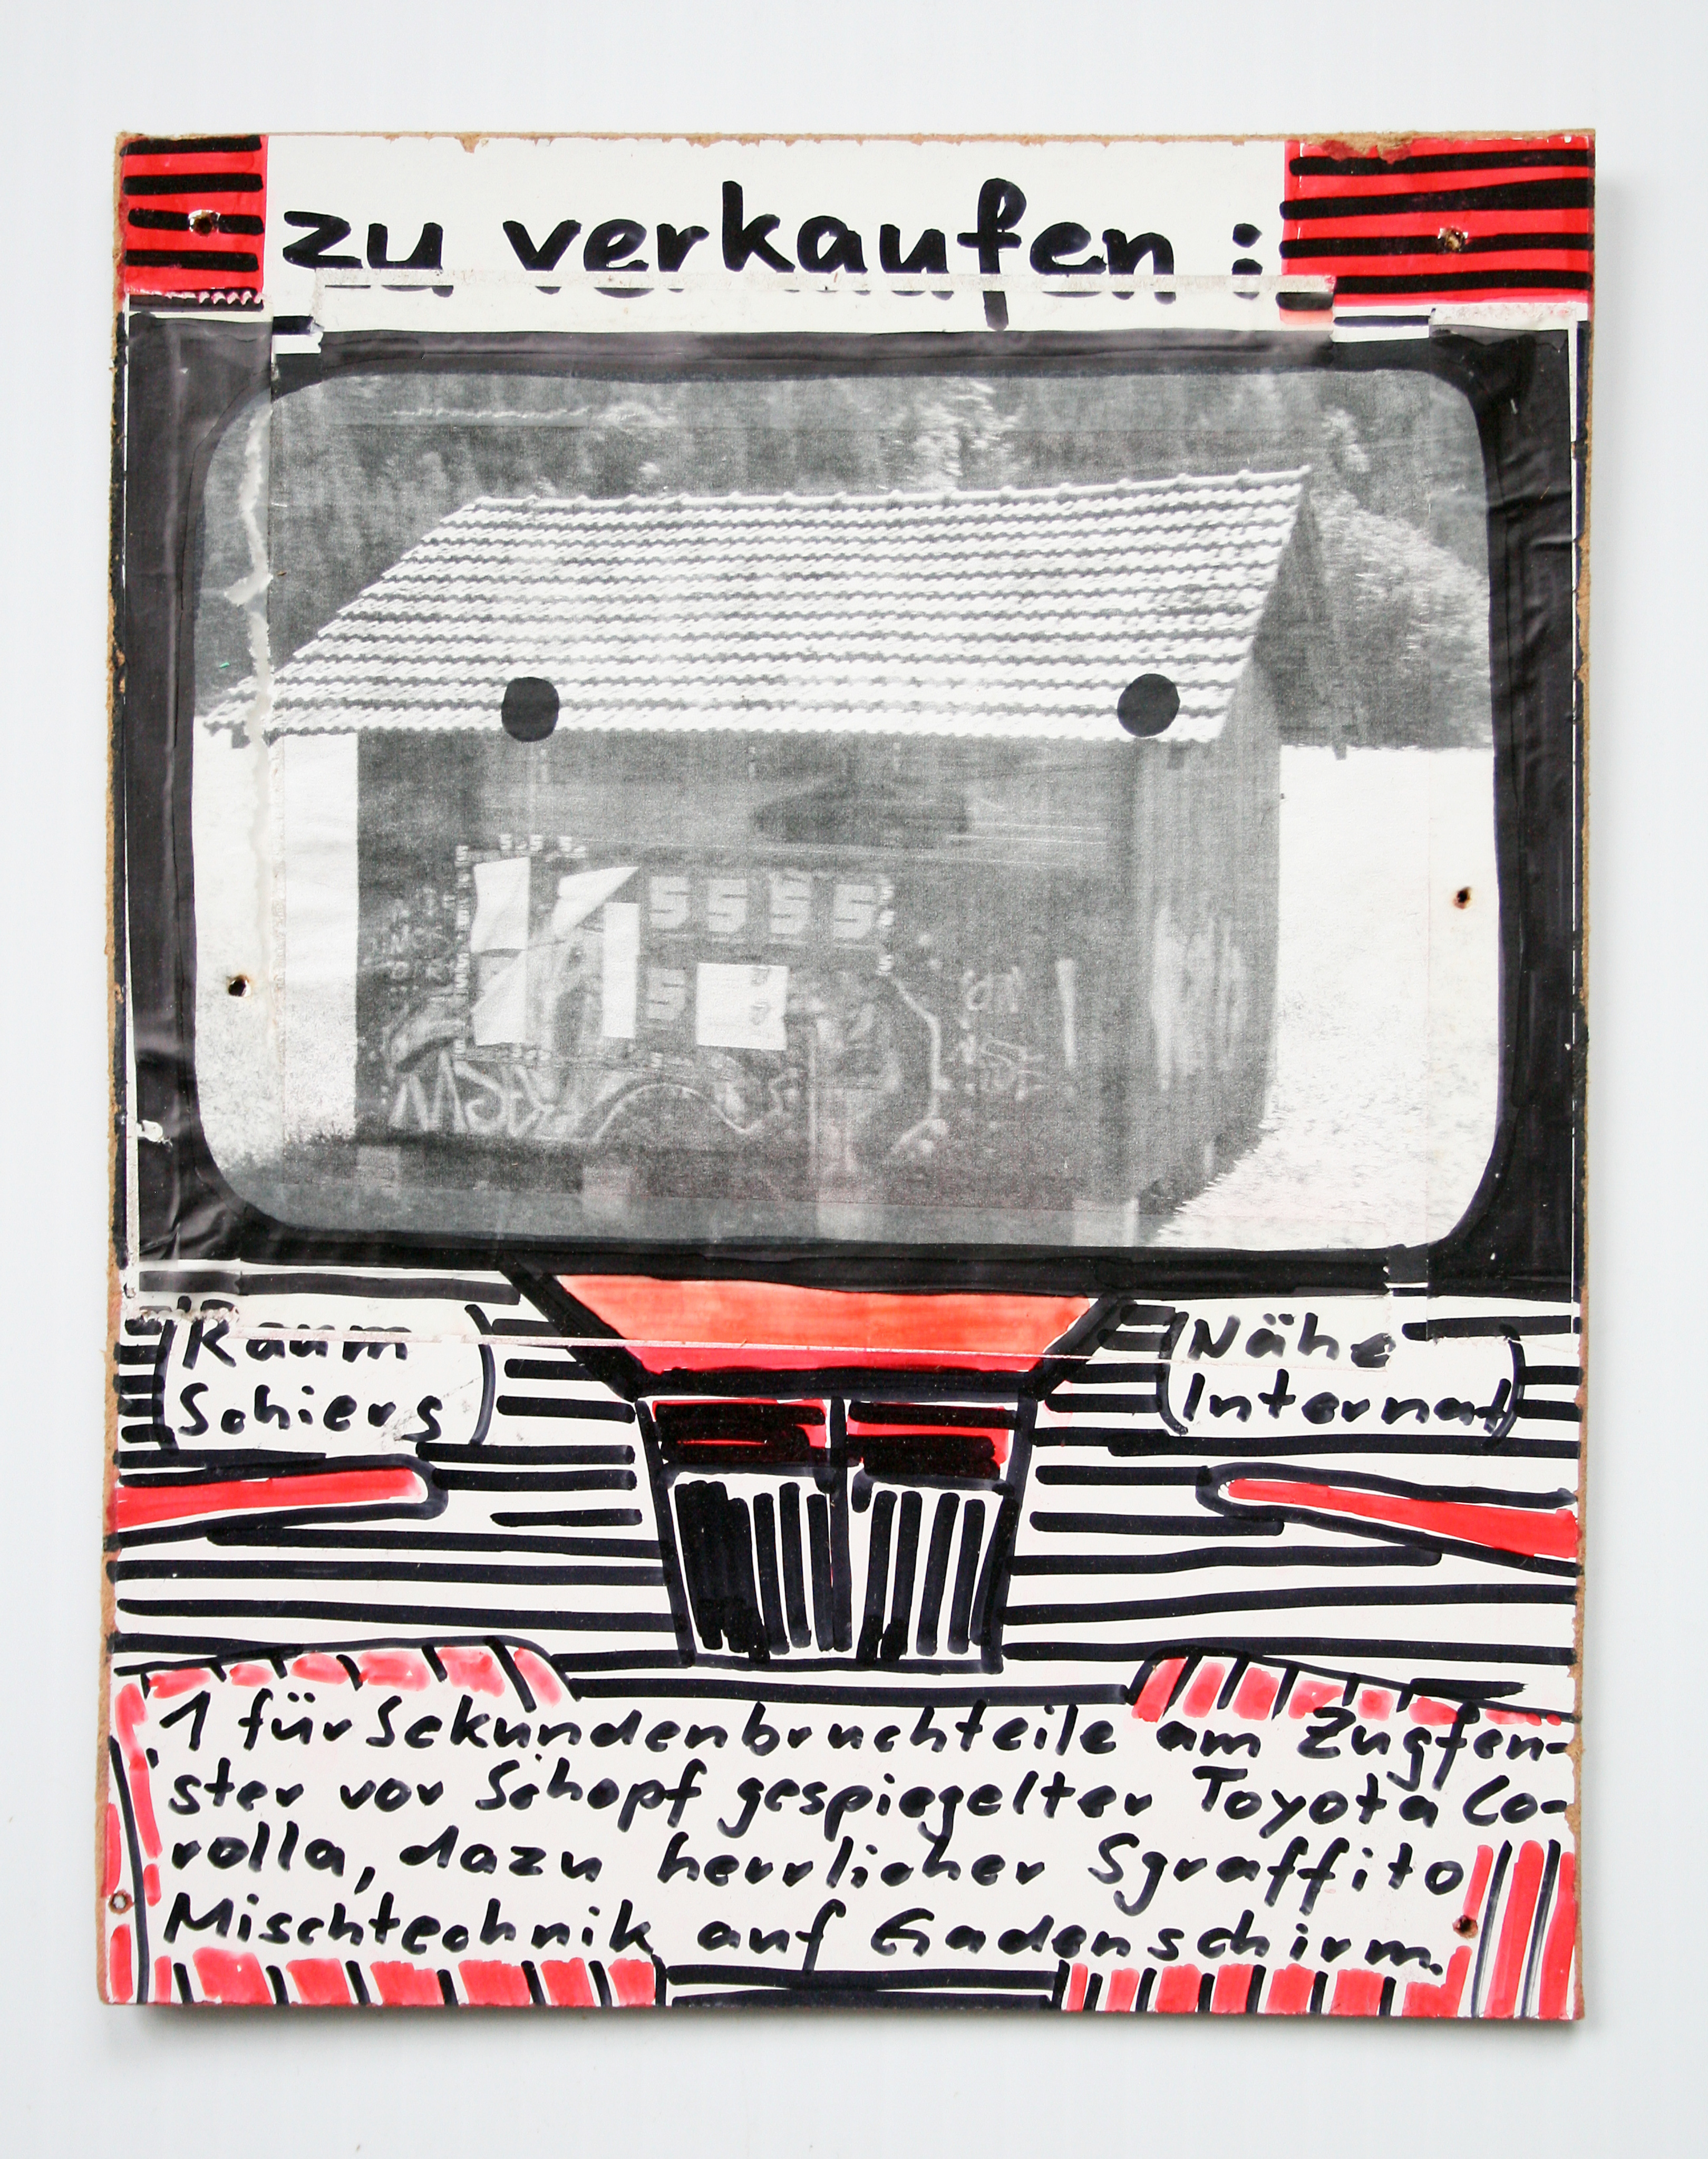 zu verkaufen :
S S S S
S
Raum
Schiers
Nähe
Internat
1 für Sekundenbruchteile am Zugfen-
ster vor Schopf gespiegelter Toyota Co-
rolla, dazu herrlicher Sgraffito
Mischtechnik auf Gadenschirm.